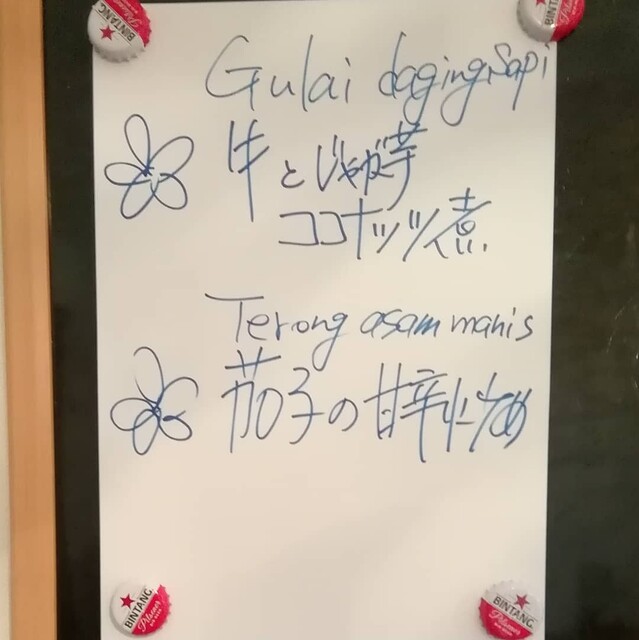 BINTANG
BINTANG
Gulai daging sapi
牛とじゃが芋
ココナッツ煮
Terong asam manis
茄子の甘辛炒め
BINTANG
Pilsener
BINTANG
Pilsener